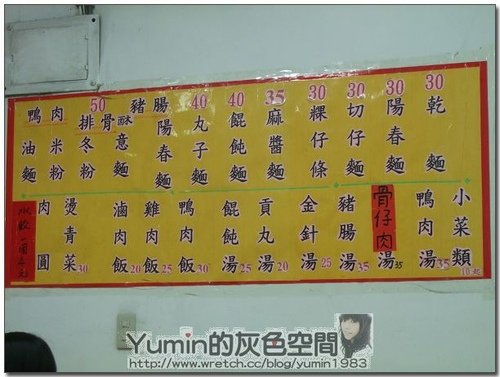 鴨肉 50 排骨酥 豬腸
油麵
米粉
冬粉
意麵
陽春麵
丸子麵 40
餛飩麵 40
麻醬麵 35
粿仔條 30
切仔麵 30
陽春麵 30
乾麵 30
水餃一個
肉圓
燙青菜 30
滷肉飯 20
雞肉飯 25
鴨肉飯 30
餛飩湯 25
貢丸湯 20
金針湯 25
豬腸湯 35
骨仔肉湯 35
鴨肉湯 35
小菜類 10起
Yumin的灰色空間
http://www.wretch.cc/blog/yumin1983